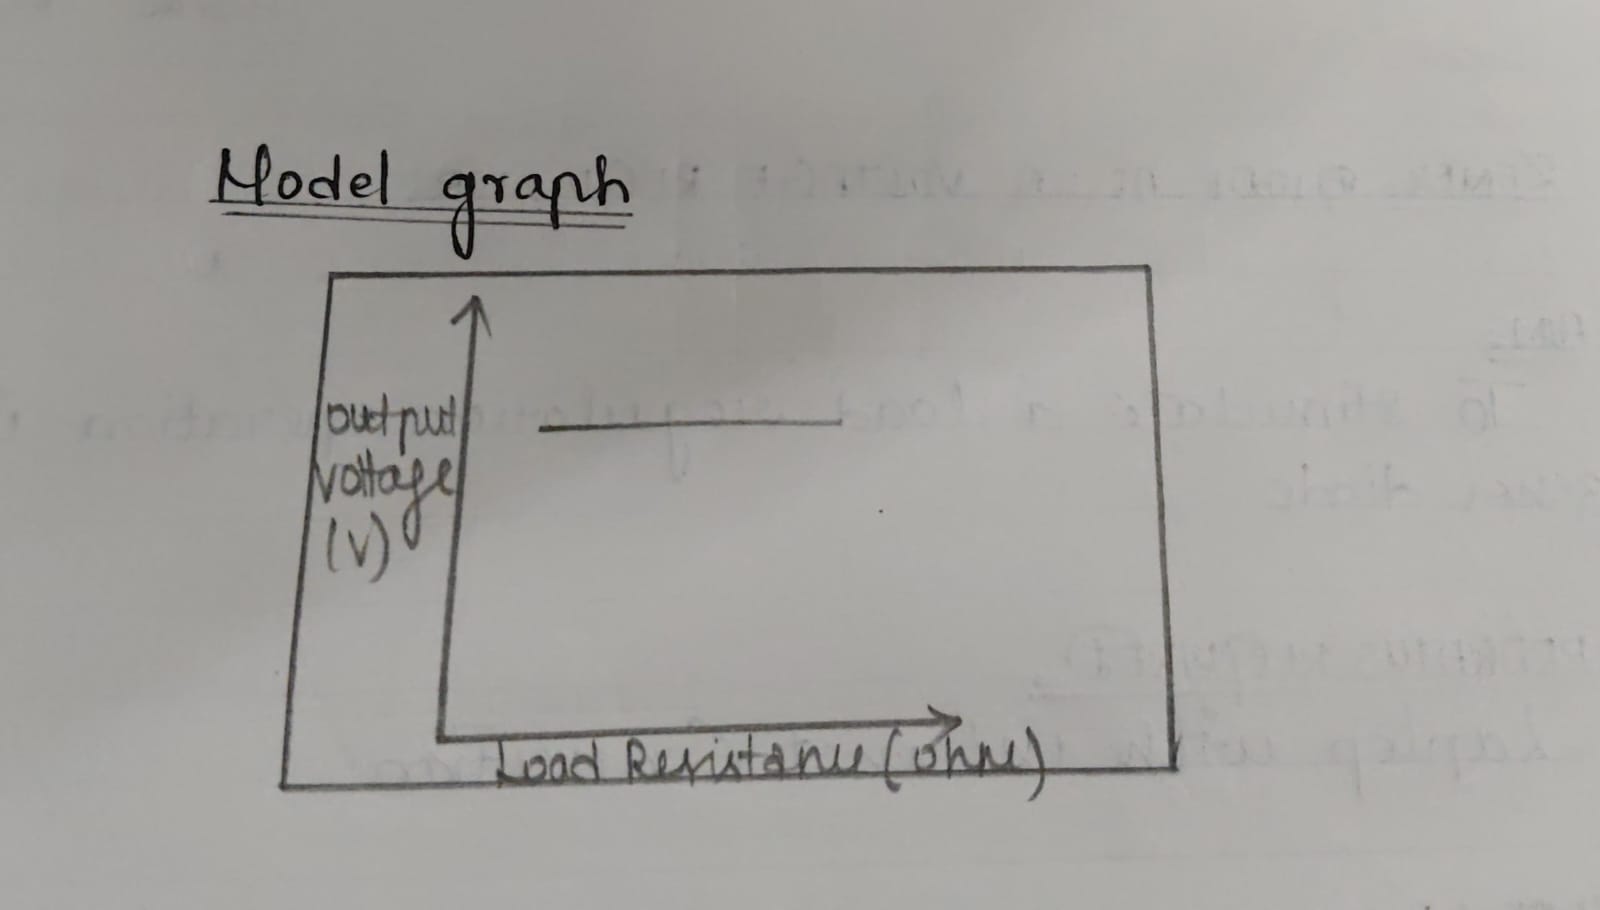 Model graph
output
voltage
(V)
Load Resistance (ohm)